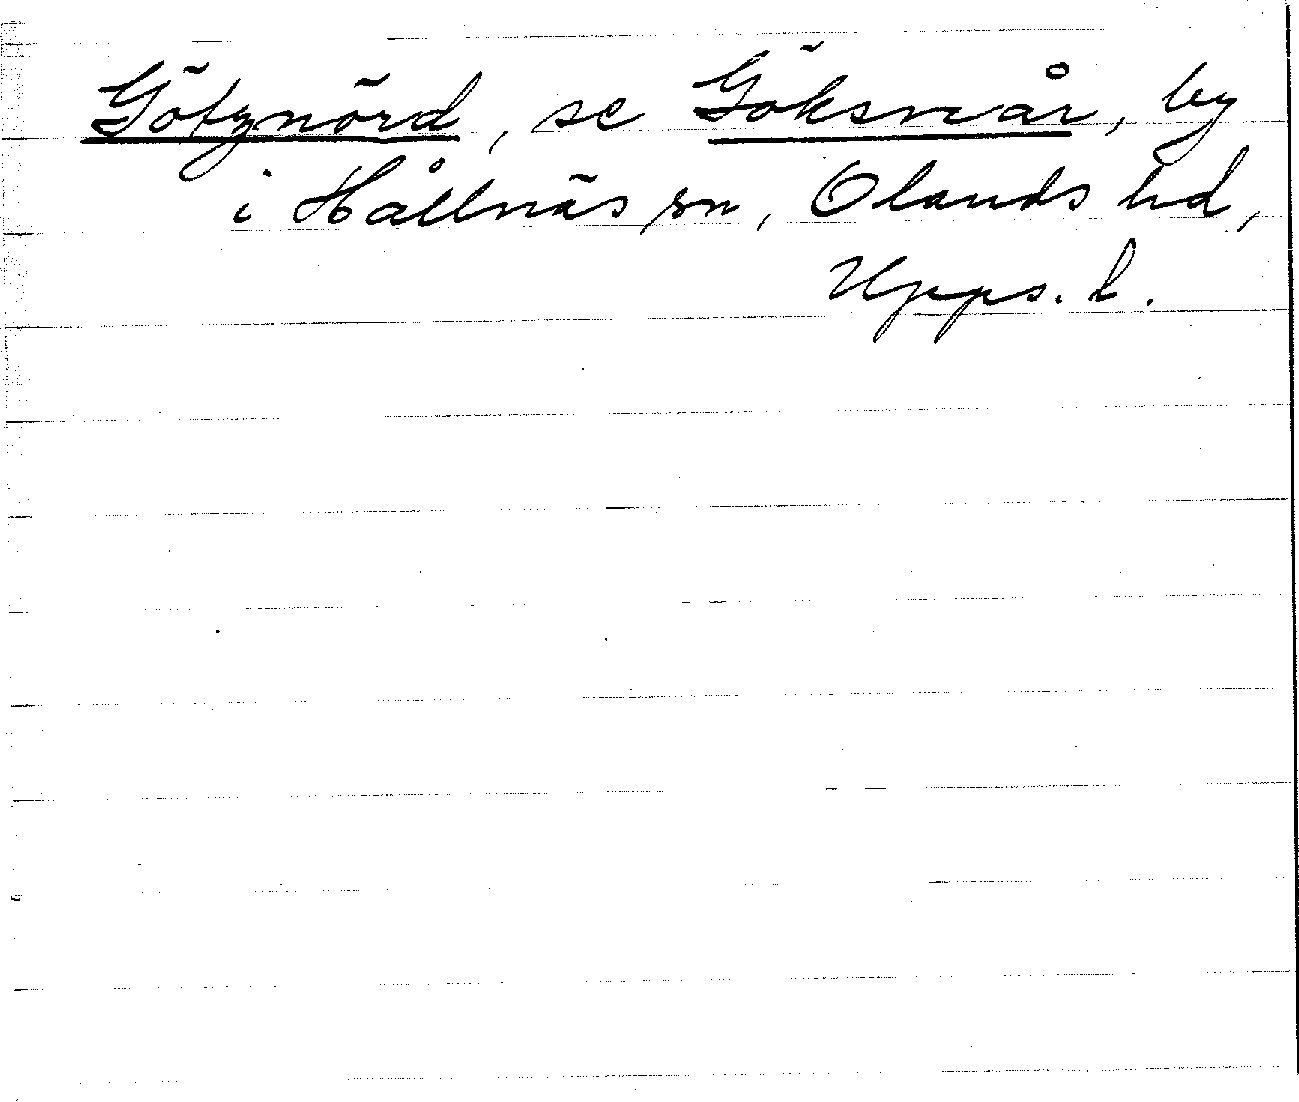 Götznörd, se Göksnår, by
i Hållnäs sn, Olands hd,
Upps. l.